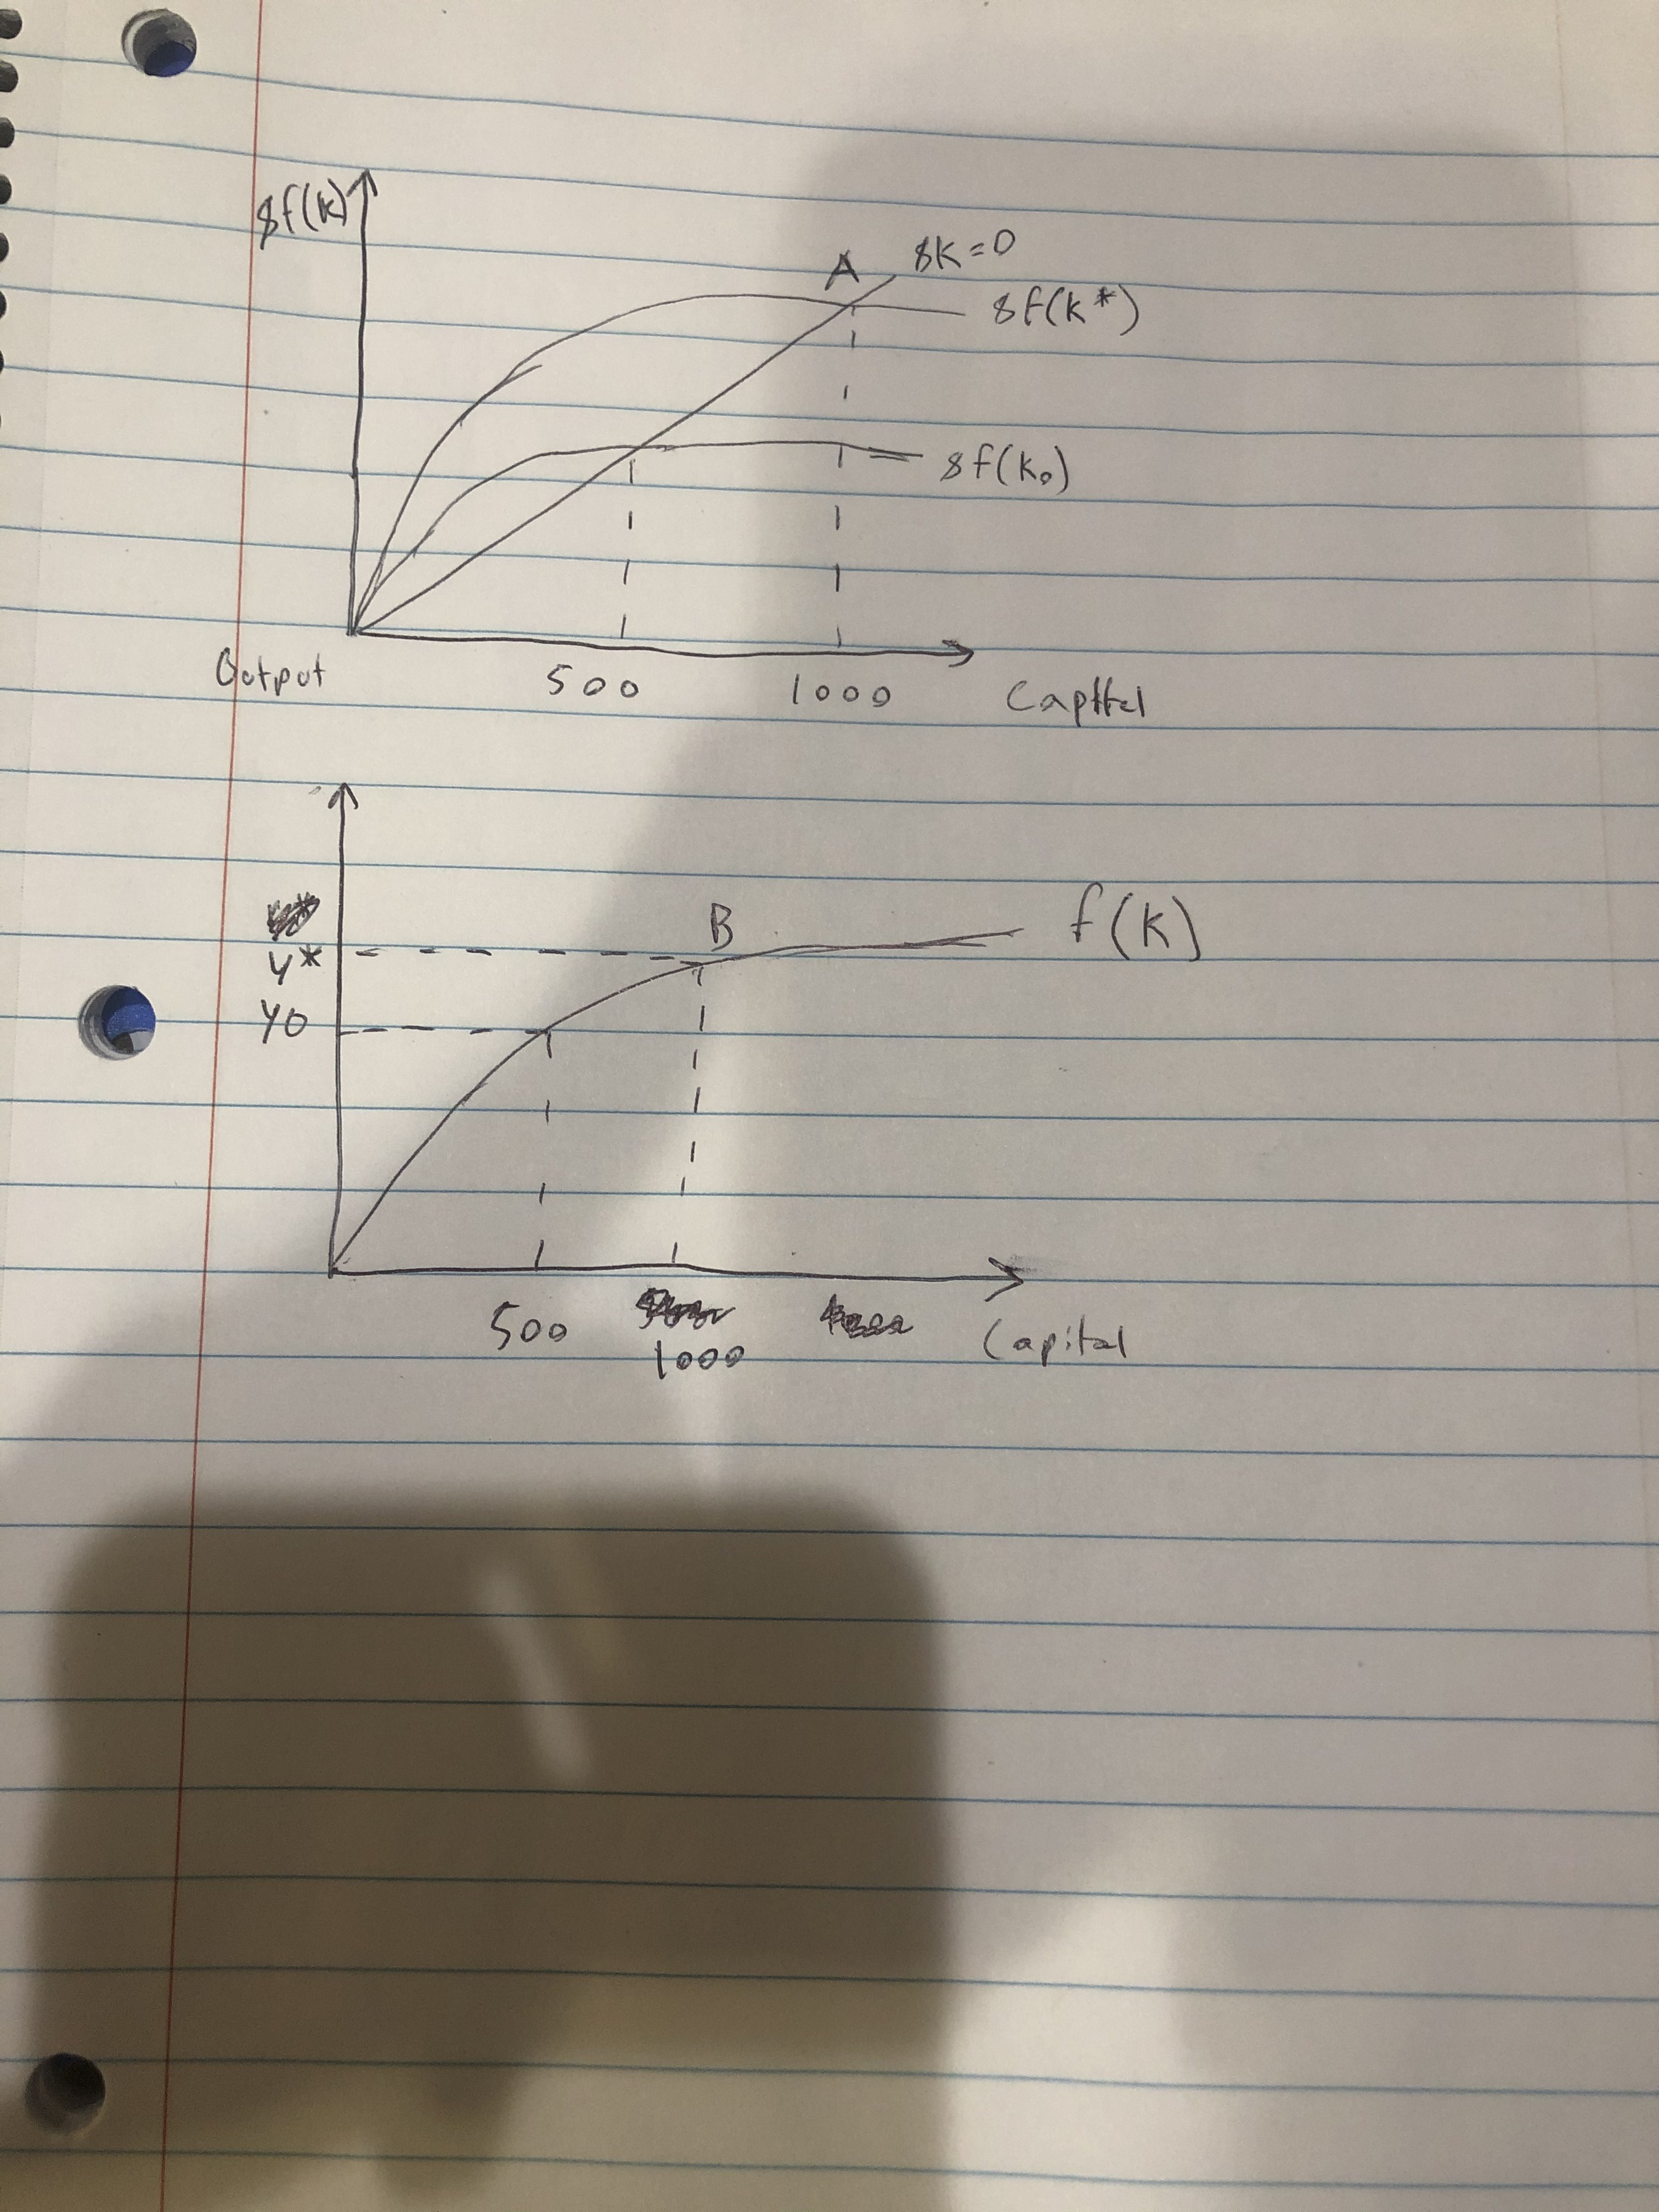 8f(k)
A
8K=0
8f(k*)
8f(k₀)
Output
500
1000
Capital
B
f(k)
Y*
Y0
500
1000
Capital